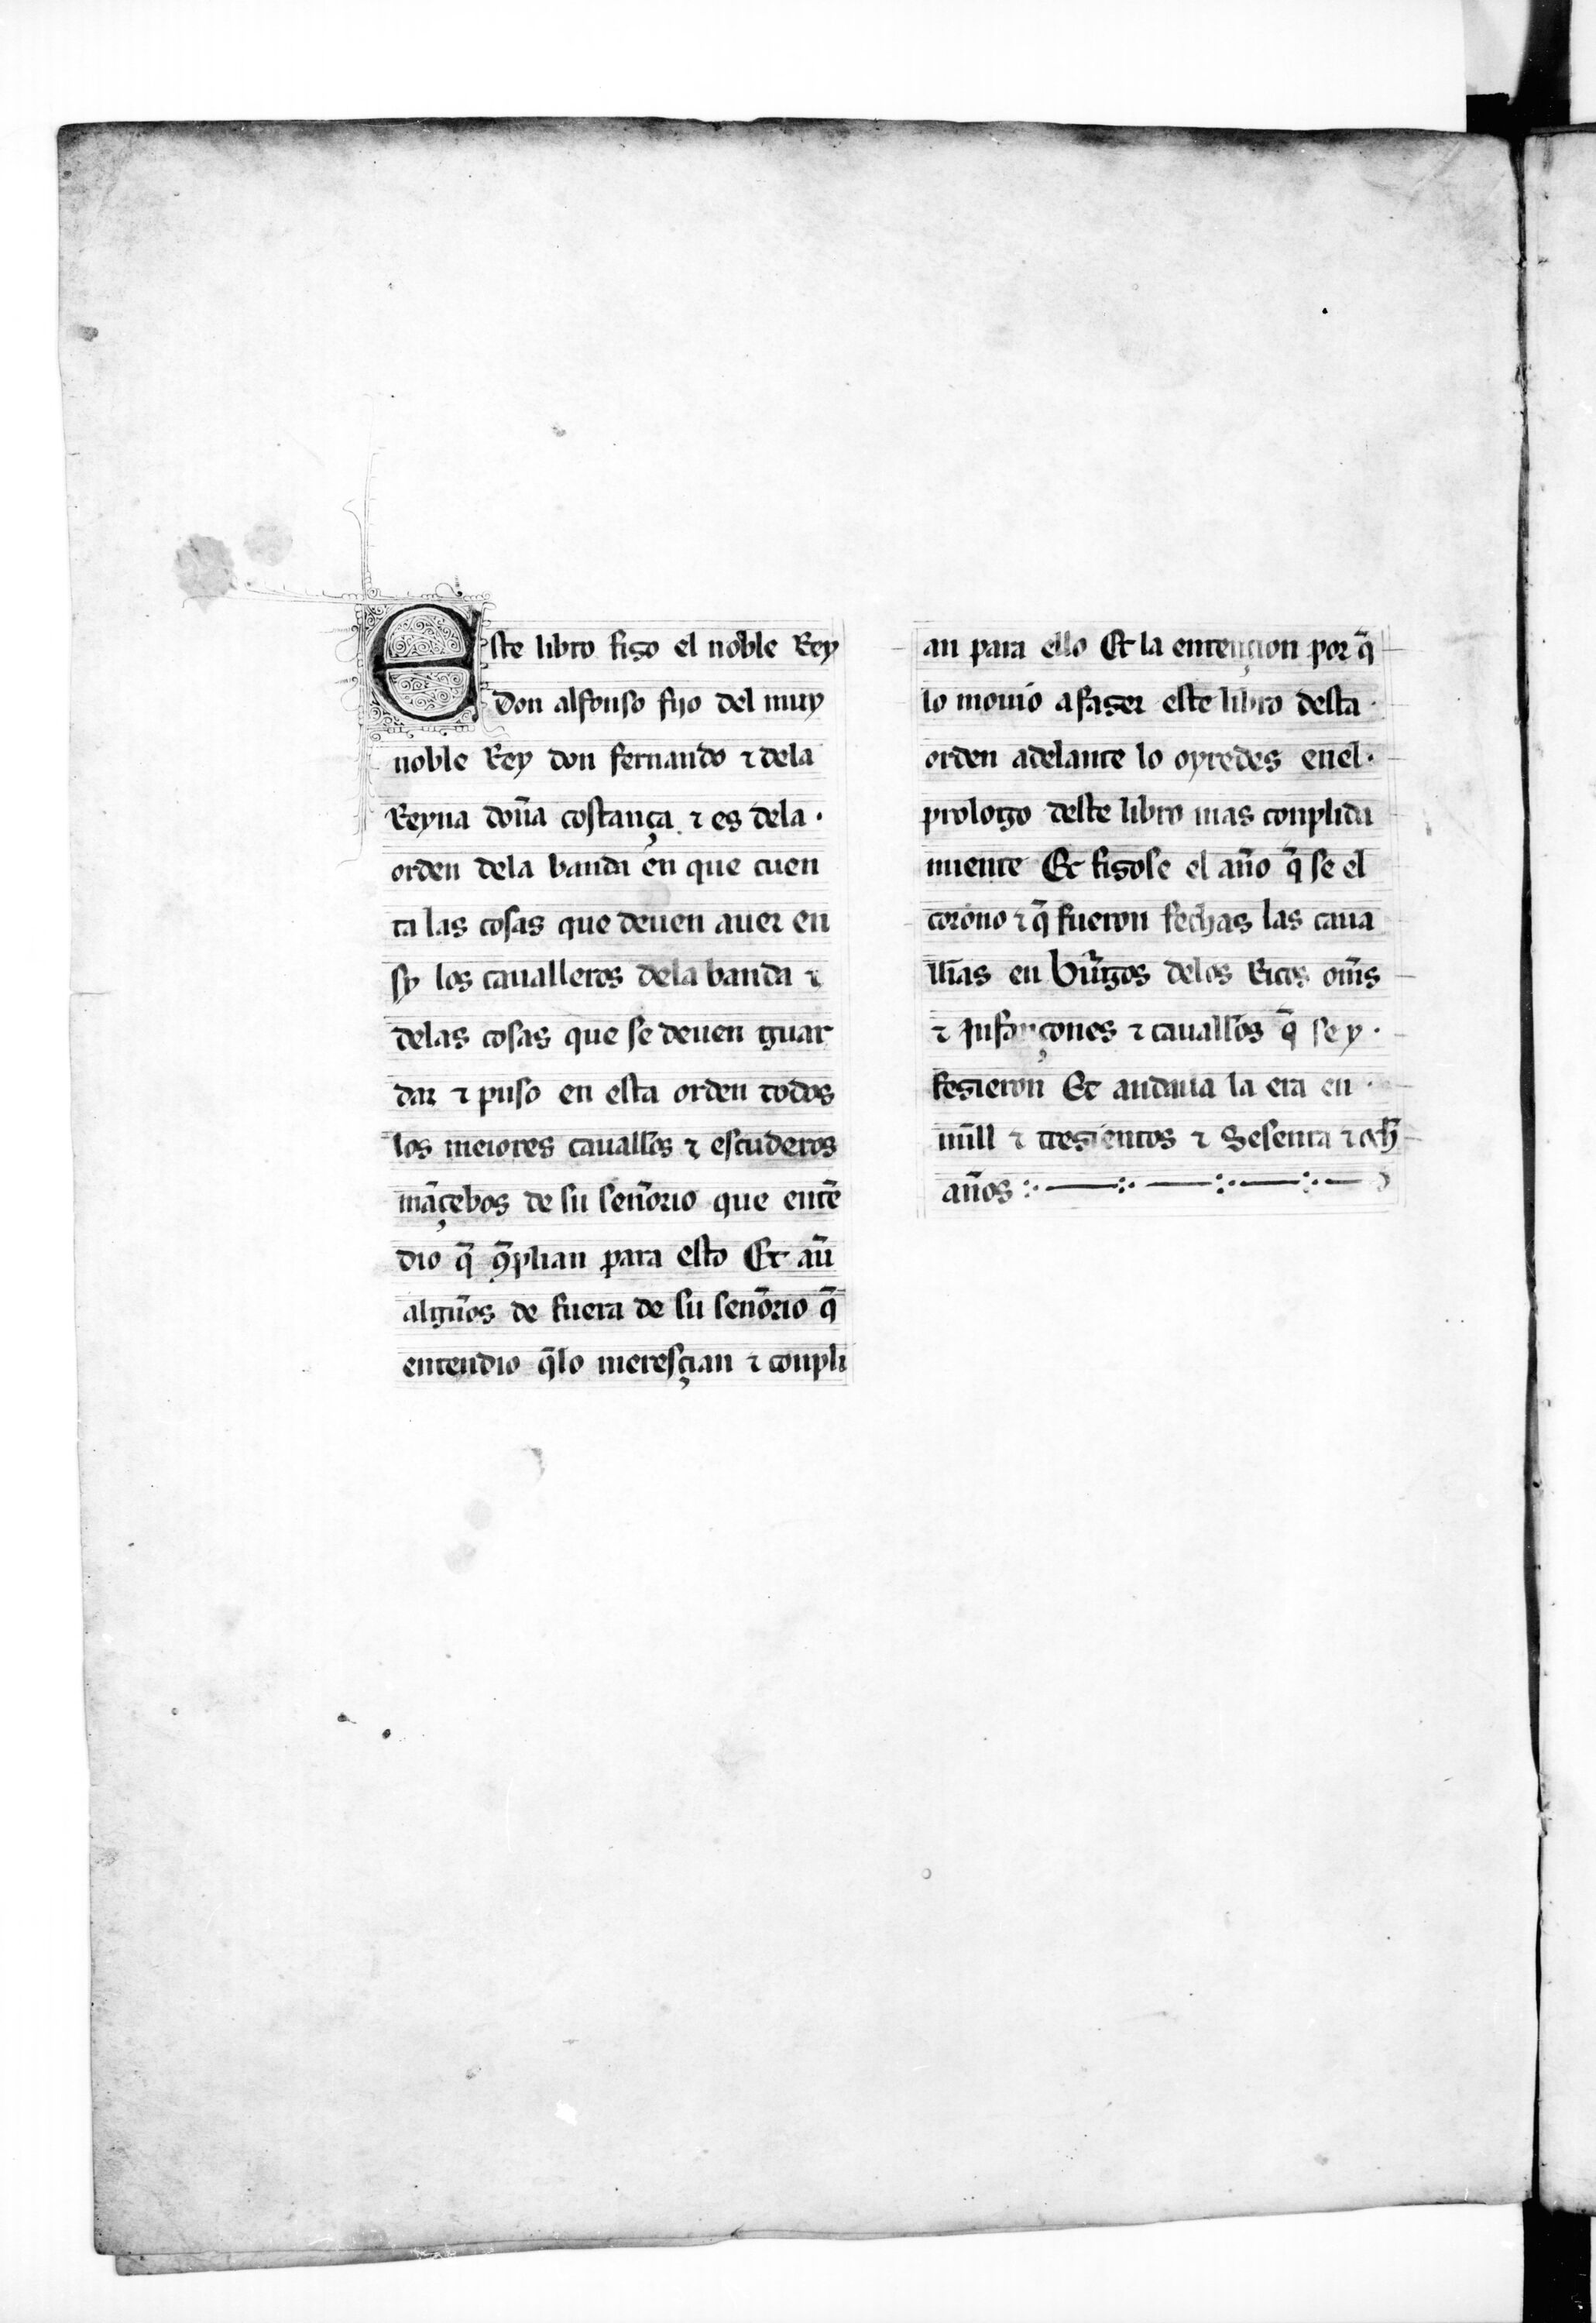 Este libro fizo el noble Rey
don alfonso fijo del muy
noble Rey don fernando ⁊ dela
Reyna doña costança. ⁊ es dela ·
orden dela banda en que cuen
ta las cosas que deuen auer en
sy los caualleros dela banda ⁊
delas cosas que se deuen guar
dar ⁊ puso en esta orden todos
los meiores cauall̃os ⁊ escuderos
mãçebos de su señorio que entẽ
dio q̃ ꝯplian para esto Et aũ
algũos de fuera de su señorio q̃
entendio q̃lo meresçian ⁊ conpli
an para ello Et la entençion por q̃
lo mouio afazer este libro desta ·
orden adelante lo oyredes enel ·
prologo deste libro mas conplida
miente Et fizose el año q̃ se el
corono ⁊ q̃ fueron fechas las caua
ll̃ias en bũrgos delos Ricos om̃s
⁊ Infançones ⁊ cauall̃os q̃ se y ·
fezieron Et andaua la era en ·
mill ⁊ trezientos ⁊ Sesenta ⁊ och̃
años :· — :· — :· — :· —